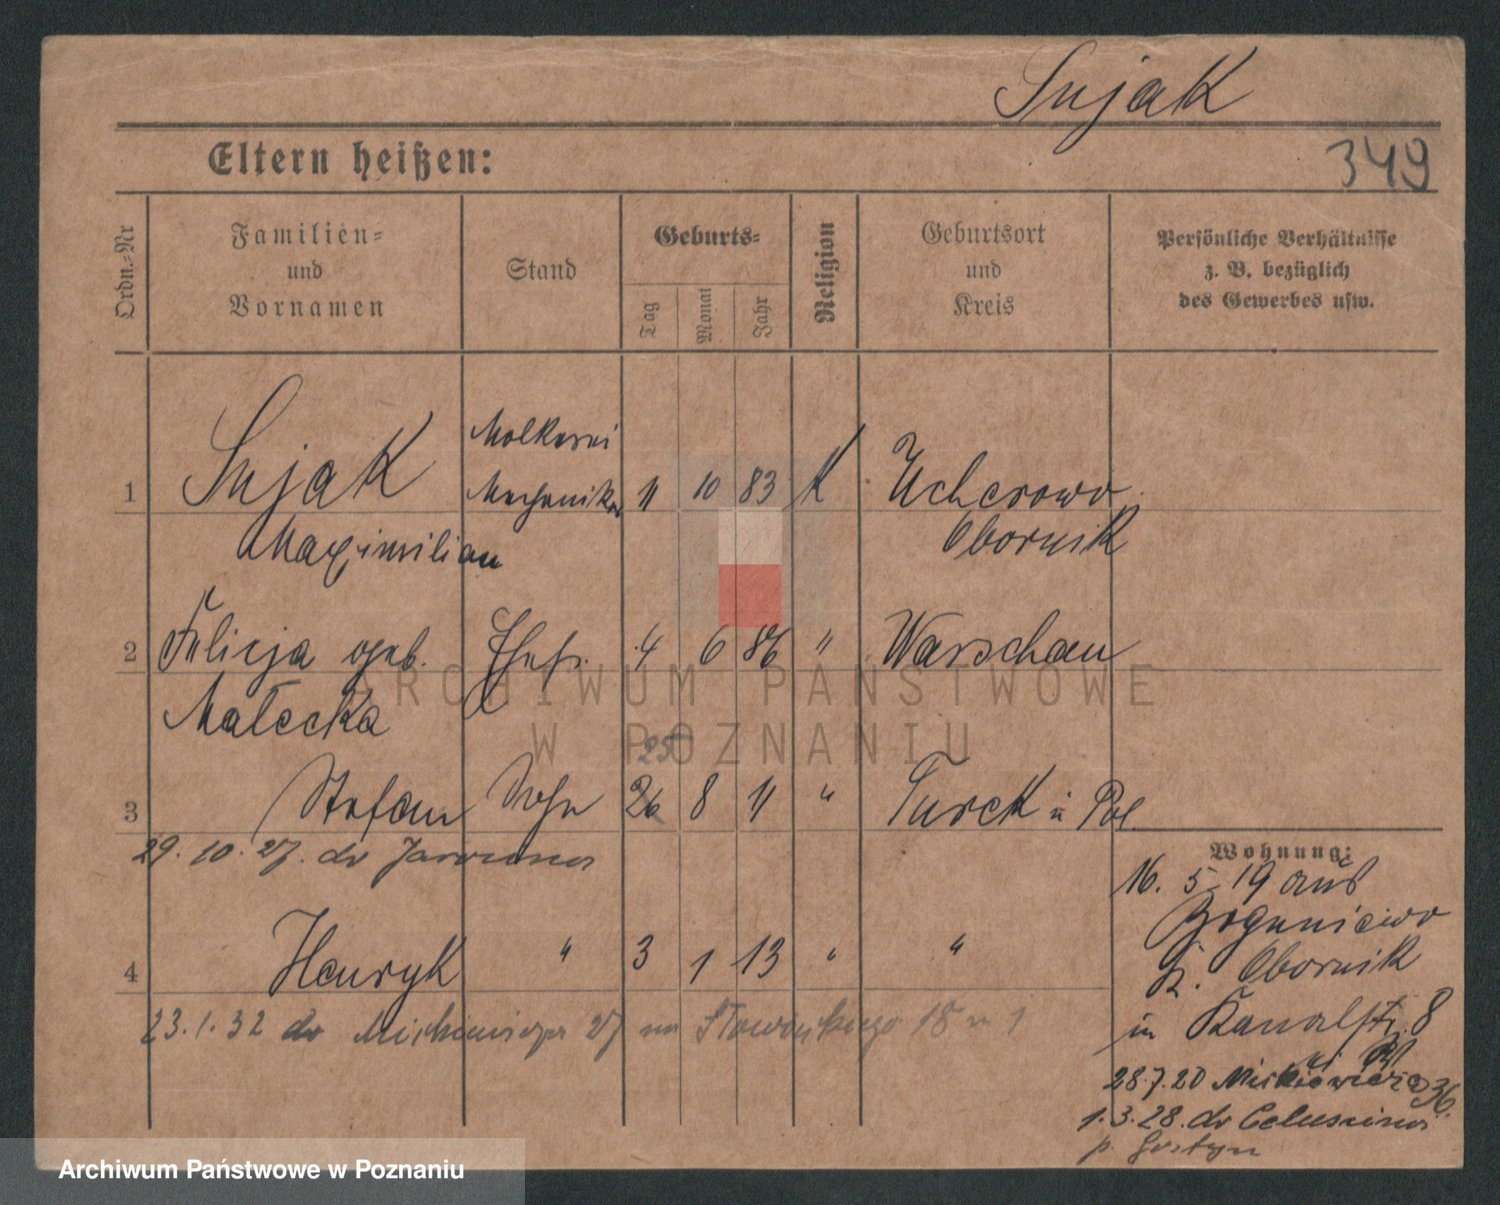 Sujak
349
Eltern heißen:
Ordn.-Nr
Familien-
und
Vornamen
Stand
Geburts-
Tag
Monat
Jahr
Religion
Geburtsort
und
Kreis
Persönliche Verhältnisse
z. B. bezüglich
des Gewerbes usw.
1 Sujak Molkerei Mechaniker 11 10 83 K Ucherowo
Maximilian Obornik
2 Felicja geb. Ehefr. 4 6 86 " Warschau
Małecka
25
3 Stefan Sohn 26 8 11 " Turek i Pol.
29. 10. 27. do
4 Henryk " 3 1 13 " "
23. 1. 32 do Mickiewicza 27 na Słowackiego 18 m 1
Wohnung:
16. 5. 19 aus
Boguniewo
K. Obornik
in Kanalstr. 8
28.7.20 Mickiewicza 36
1. 3. 28. do
p. Gostyn
ARCHIWUM PAŃSTWOWE
W POZNANIU
Archiwum Państwowe w Poznaniu